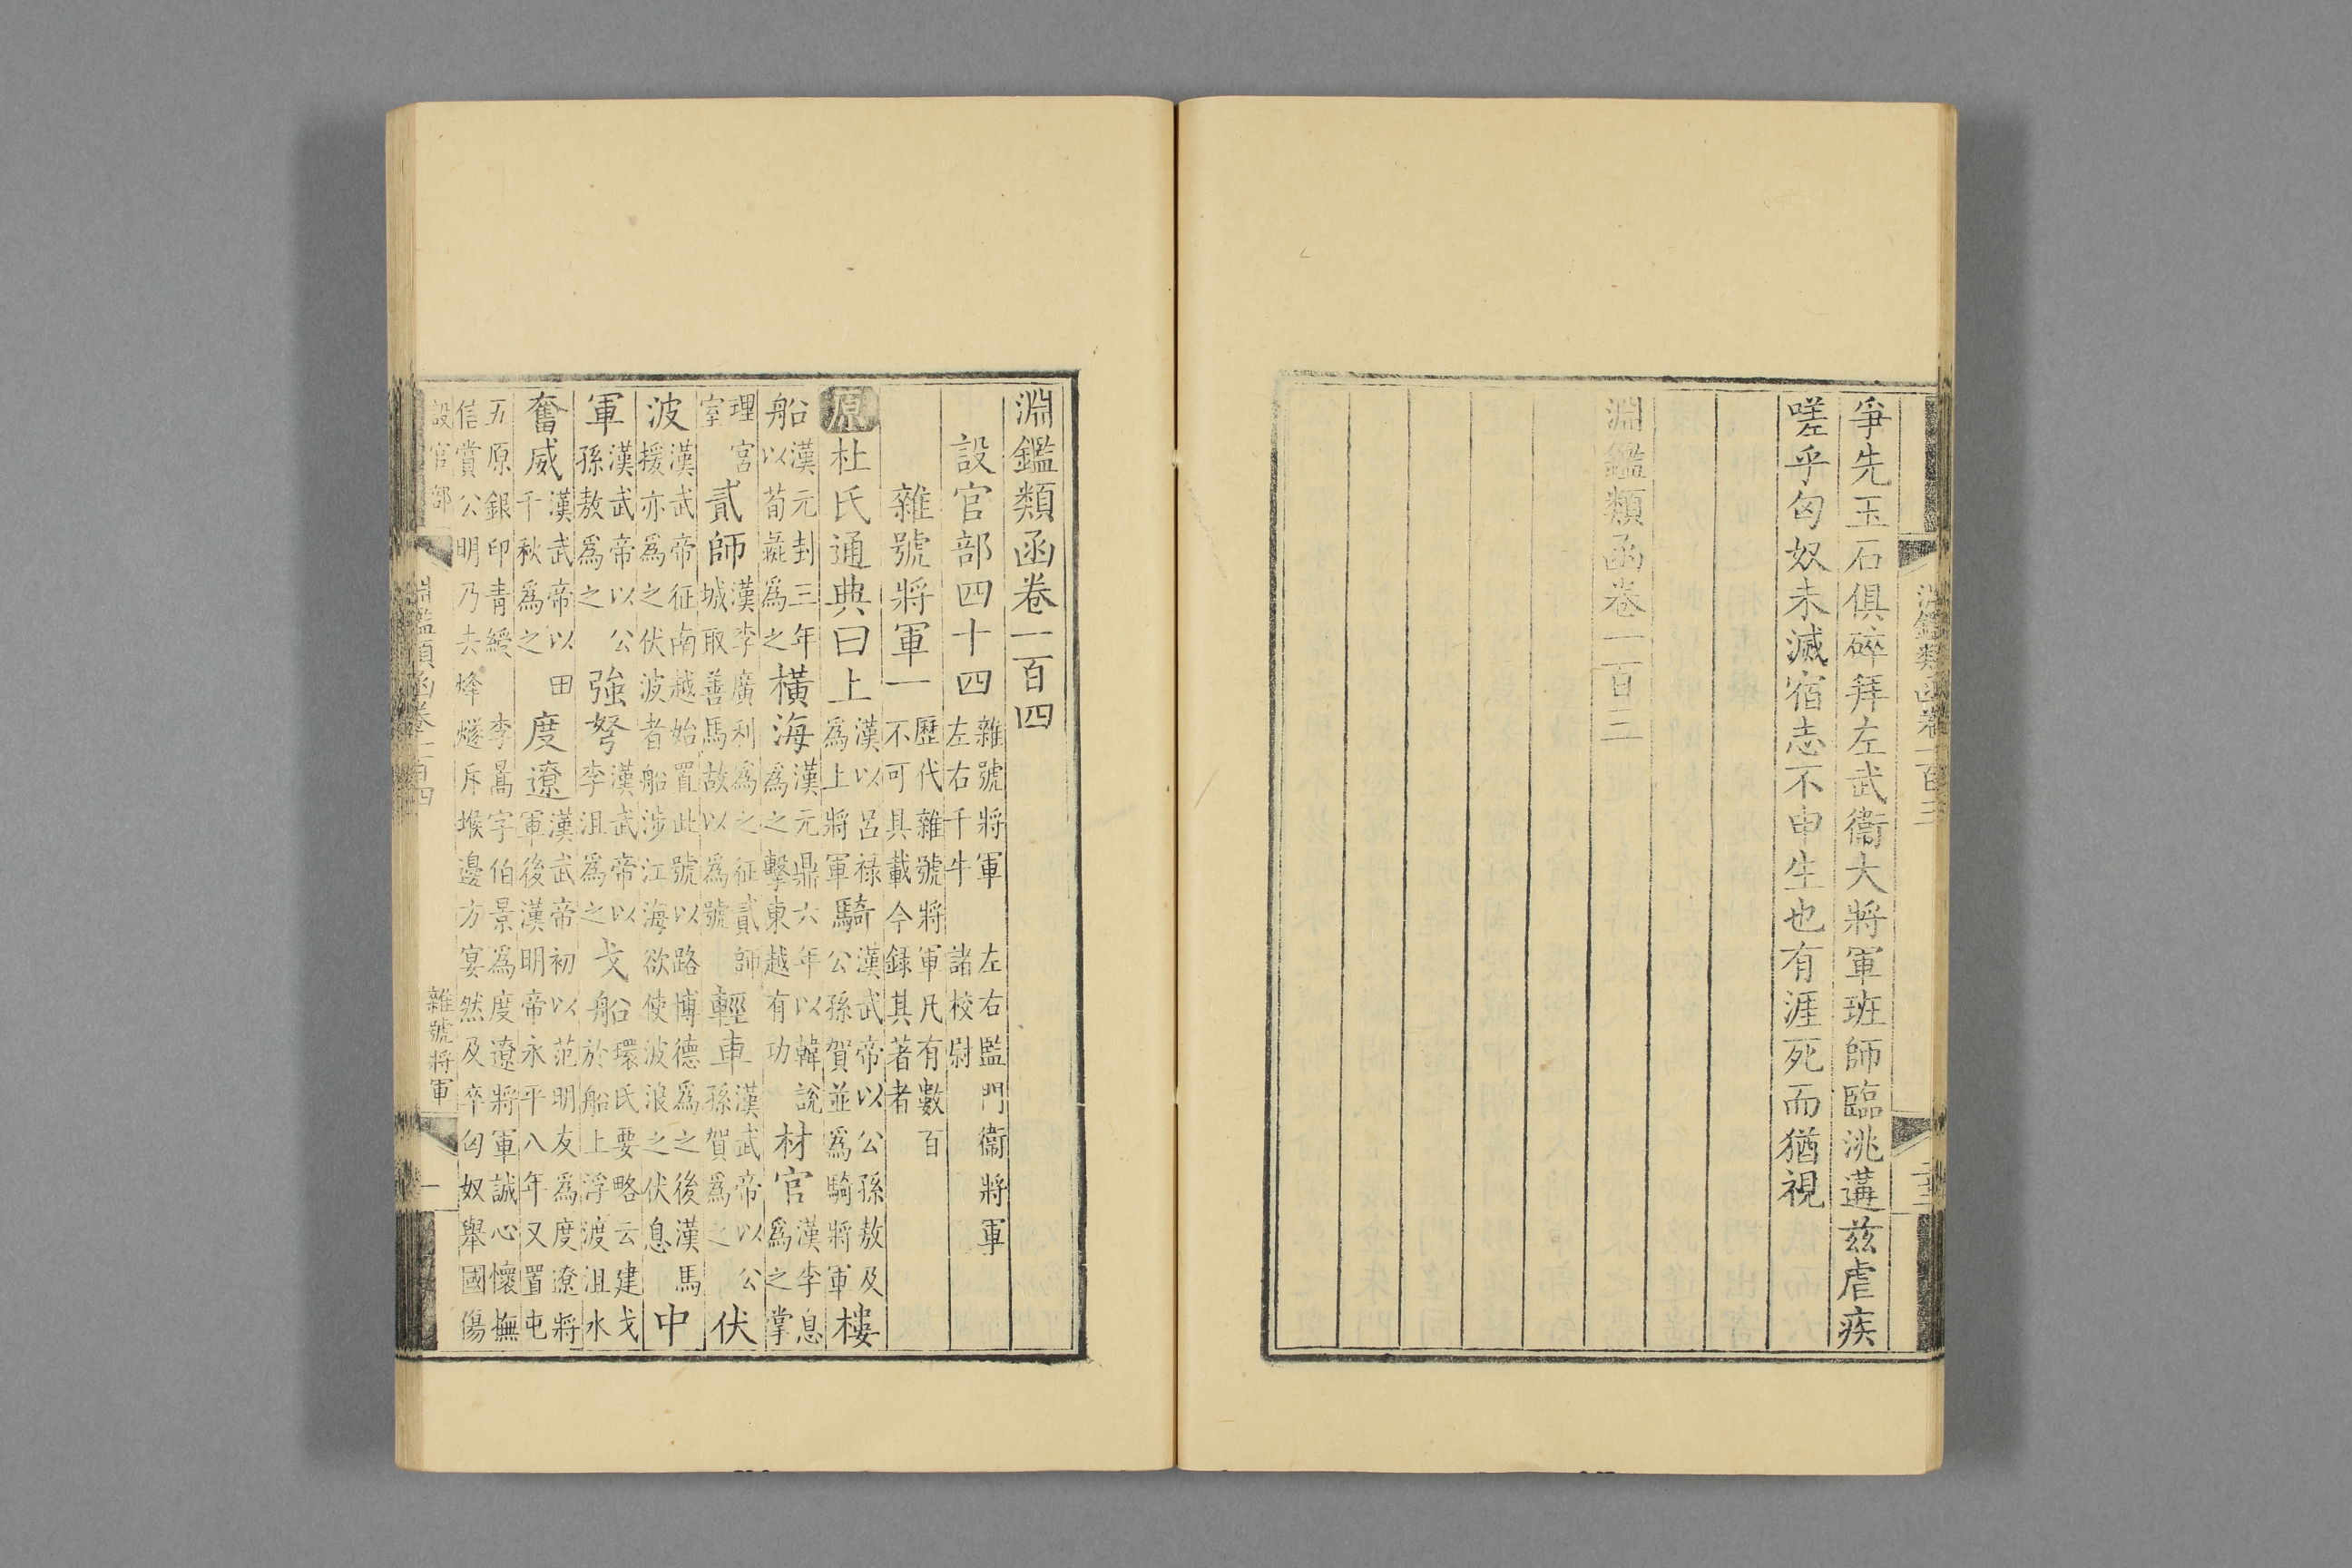 淵鑑類函卷一百三
爭先玉石俱碎拜左武衞大將軍班師臨洮遘茲虐疾
嗟乎匈奴未滅宿志不申生也有涯死而猶視
淵鑑類函卷一百三
淵鑑類函卷一百四
設官部四十四雜號將軍 左右監門衞將軍左右千牛 諸校尉
雜號將軍一歷代雜號將軍凡有數百不可具載今錄其著者
原杜氏通典曰上漢以呂祿爲上將軍騎漢武帝以公孫敖及公孫賀並爲騎將軍樓
船漢元封三年以荀彘爲之橫海漢元鼎六年以韓說爲之擊東越有功材官漢李息爲之掌
理宮室貳師漢李廣利爲之征貳師城取善馬故以爲號輕車漢武帝以公孫賀爲之伏
波漢武帝征南越始置此號以路博德爲之後漢馬援亦爲之伏波者船涉江海欲使波浪之伏息中
軍漢武帝以公孫敖爲之強弩漢武帝以李沮爲之戈船環氏要略云建戈於船上浮渡沮水
奮威漢武帝以田千秋爲之度遼漢武帝初以范明友爲度遼將軍後漢明帝永平八年又置屯
五原銀印青綬 李暠字伯景爲度遼將軍誠心懷撫信賞公明乃去烽燧斥堠邊方宴然及卒匈奴舉國傷
設官部 淵鑑類函卷一百四 雜號將軍 一